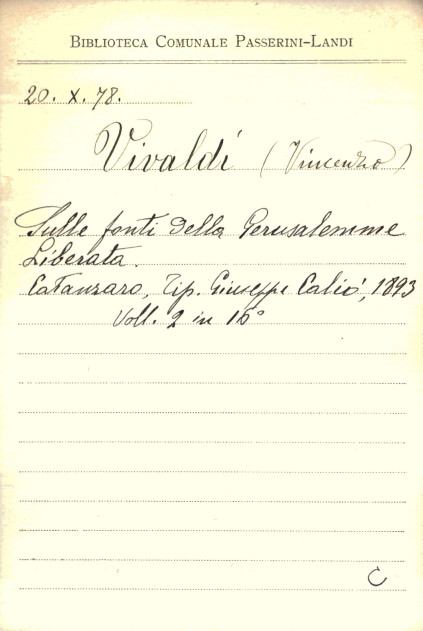 BIBLIOTECA COMUNALE PASSERINI-LANDI
20. X. 78.
Vivaldi (Vincenzo)
Sulle fonti della Gerusalemme
Liberata.
Catanzaro, Tip. Giuseppe Caliò, 1893
Voll. 2 in 16°
C